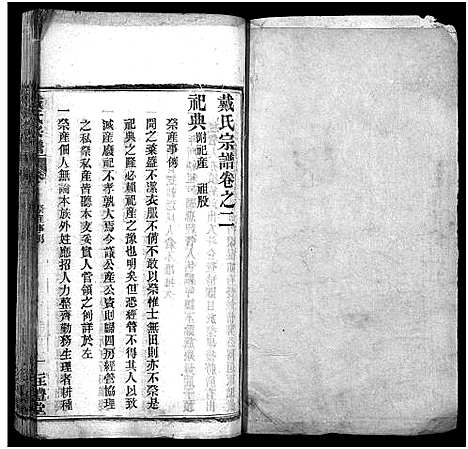 戴氏宗譜卷之二
祀典 附祀產 祖殷
祭產事例
問之粢盛不潔衣服不備不敢以祭惟士無田則亦不祭是
祀典之隆必賴祀產之豫也明矣但恐經管不得其人以致
減產廢祀不孝孰大焉今議公產公資則歸四房經營協理
之私祭私產皆聽本支妥實人管領之例詳於左
一祭產佃人無論本族外姓應招人力整齊勤務生理者耕種